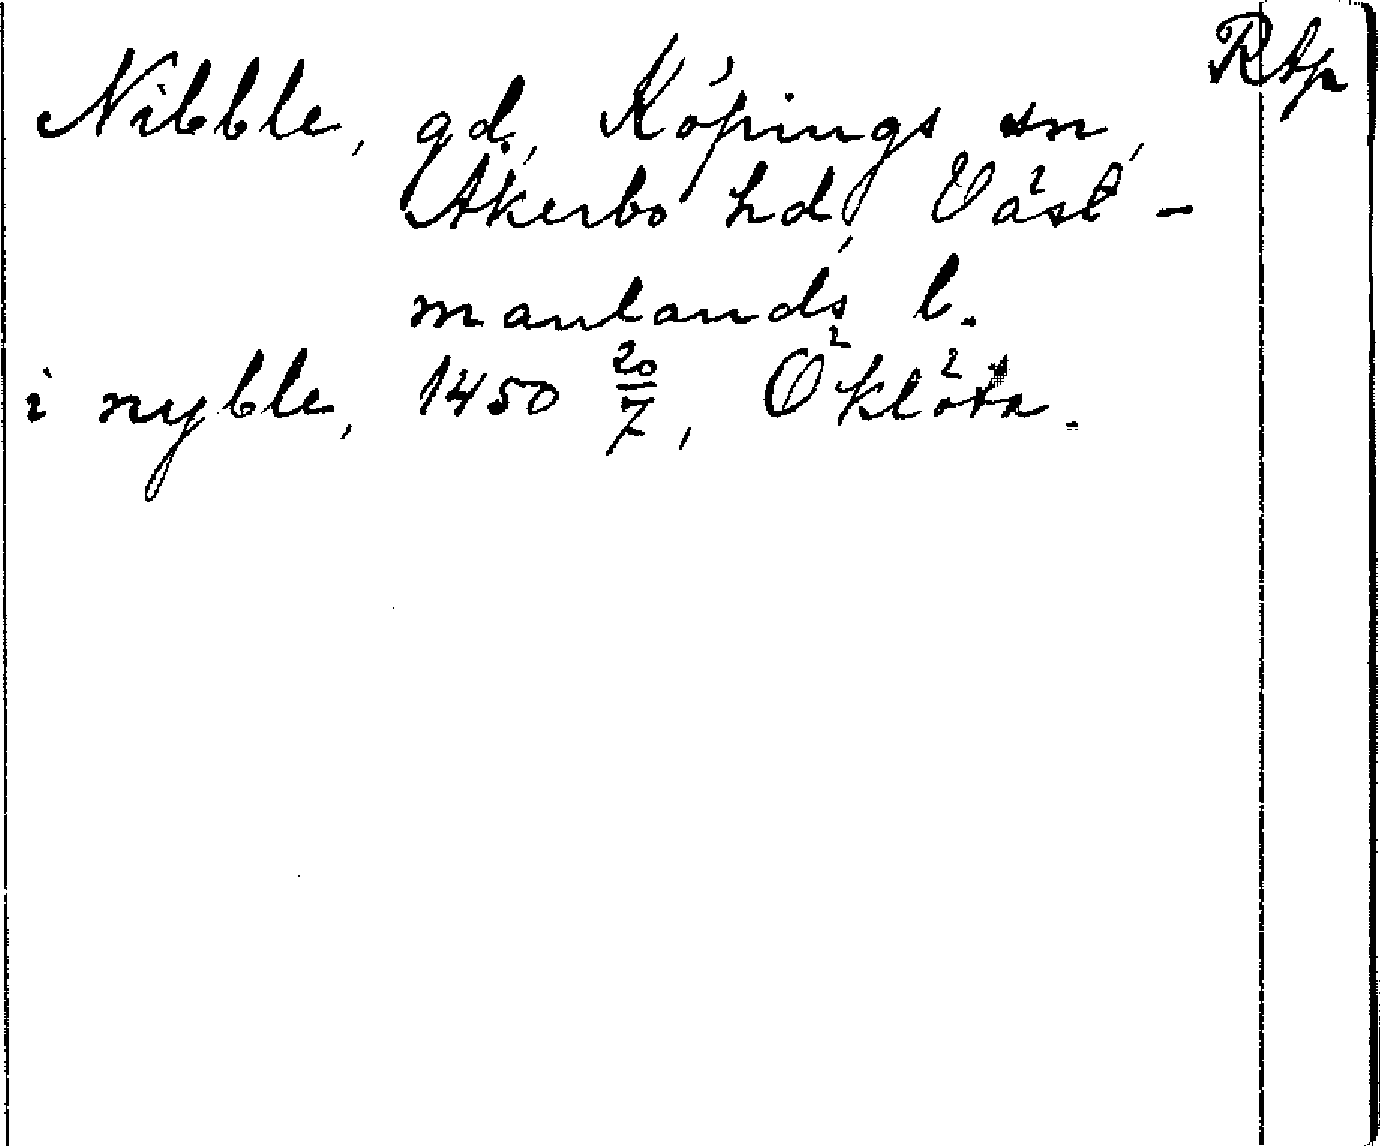 RAp
Nibble, gd, Köpings sn,
Åkerbo hd, Väst-
manlands l.
i nyble, 1450 20/7, Öklöta.